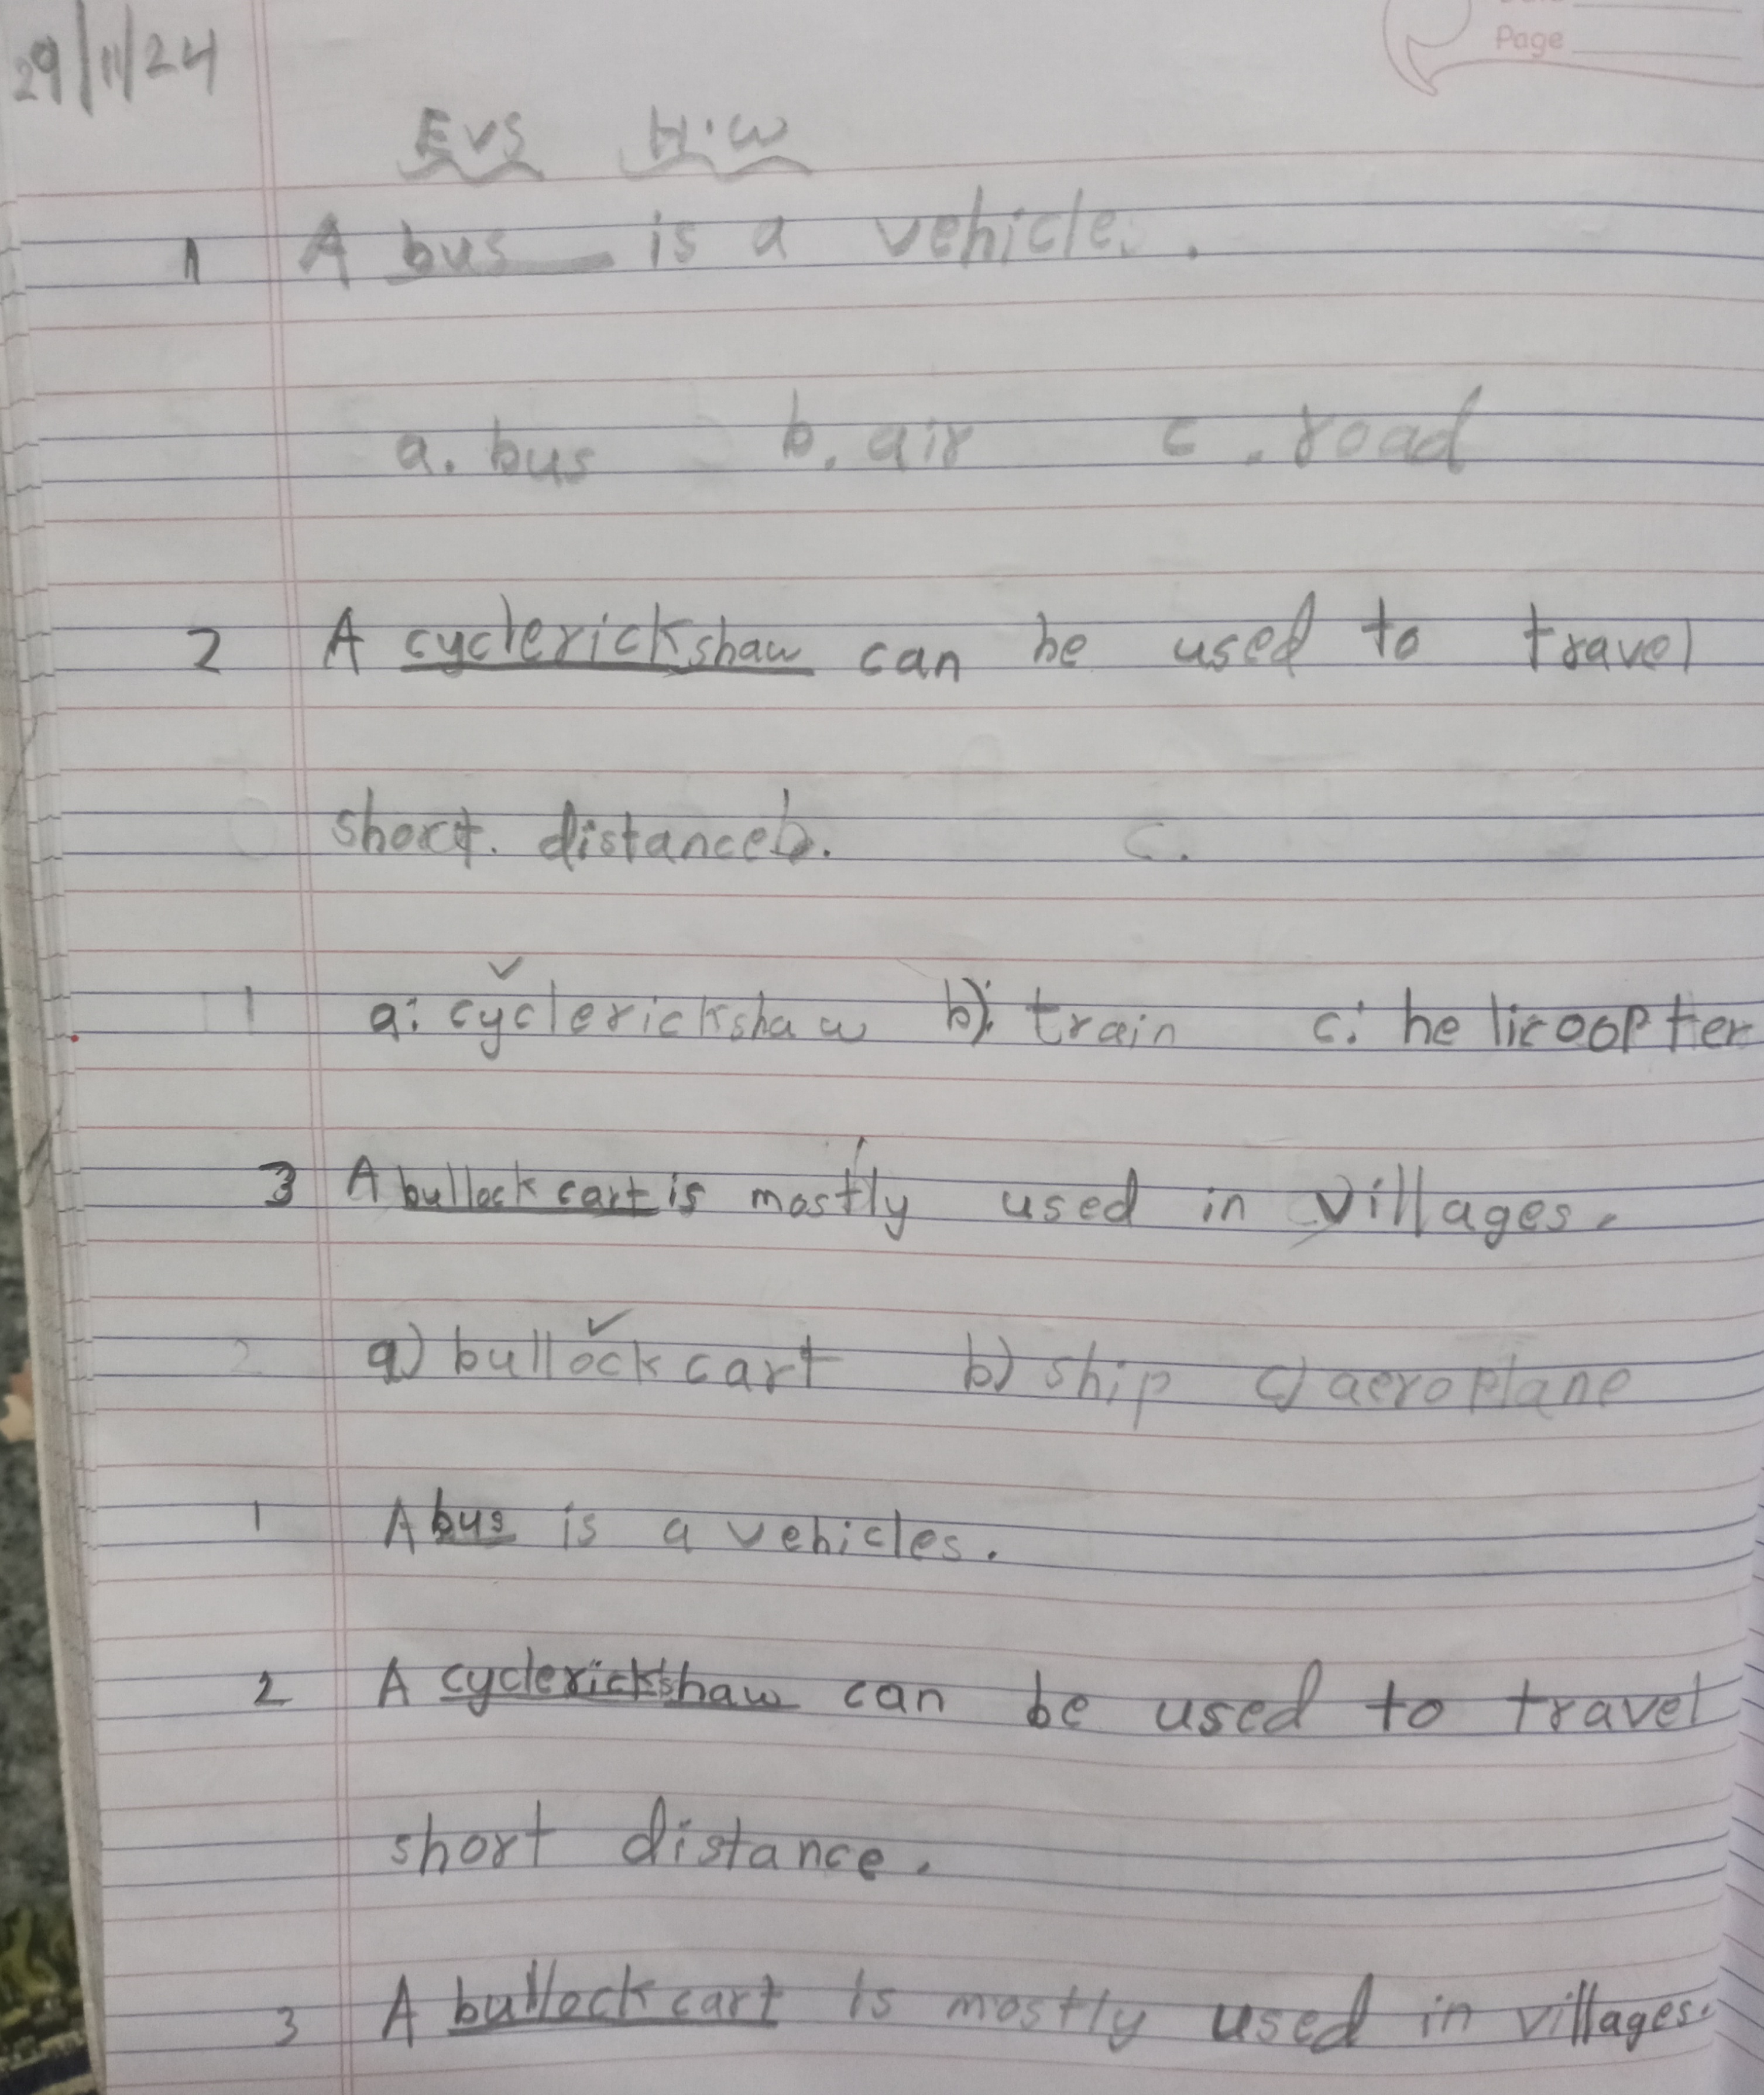 Page
29/11/24
EVS H.W
1 A bus is a vehicle.
a. bus b. air c. road
2 A cyclerickshaw can be used to travel
short. distanceb. c.
1 a: cyclerickshaw b): train c: helicoopter
3 A bullock cart is mostly used in villages.
2 a) bullock cart b) ship c) aeroplane
1 A bus is a vehicles.
2 A cyclerickshaw can be used to travel
short distance.
3 A bullock cart is mostly used in villages.